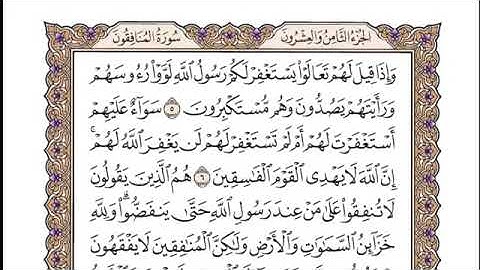 الجزء الثامن والعشرون
سورة المنافقون
وَإِذَا قِيلَ لَهُمْ تَعَالَوْا۟ يَسْتَغْفِرْ لَكُمْ رَسُولُ ٱللَّهِ لَوَّوْا۟ رُءُوسَهُمْ
وَرَأَيْتَهُمْ يَصُدُّونَ وَهُم مُّسْتَكْبِرُونَ ٥ سَوَآءٌ عَلَيْهِمْ
أَسْتَغْفَرْتَ لَهُمْ أَمْ لَمْ تَسْتَغْفِرْ لَهُمْ لَن يَغْفِرَ ٱللَّهُ لَهُمْ ۚ
إِنَّ ٱللَّهَ لَا يَهْدِى ٱلْقَوْمَ ٱلْفَـٰسِقِينَ ٦ هُمُ ٱلَّذِينَ يَقُولُونَ
لَا تُنفِقُوا۟ عَلَىٰ مَنْ عِندَ رَسُولِ ٱللَّهِ حَتَّىٰ يَنفَضُّوا۟ ۗ وَلِلَّهِ
خَزَآئِنُ ٱلسَّمَـٰوَٰتِ وَٱلْأَرْضِ وَلَـٰكِنَّ ٱلْمُنَـٰفِقِينَ لَا يَفْقَهُونَ